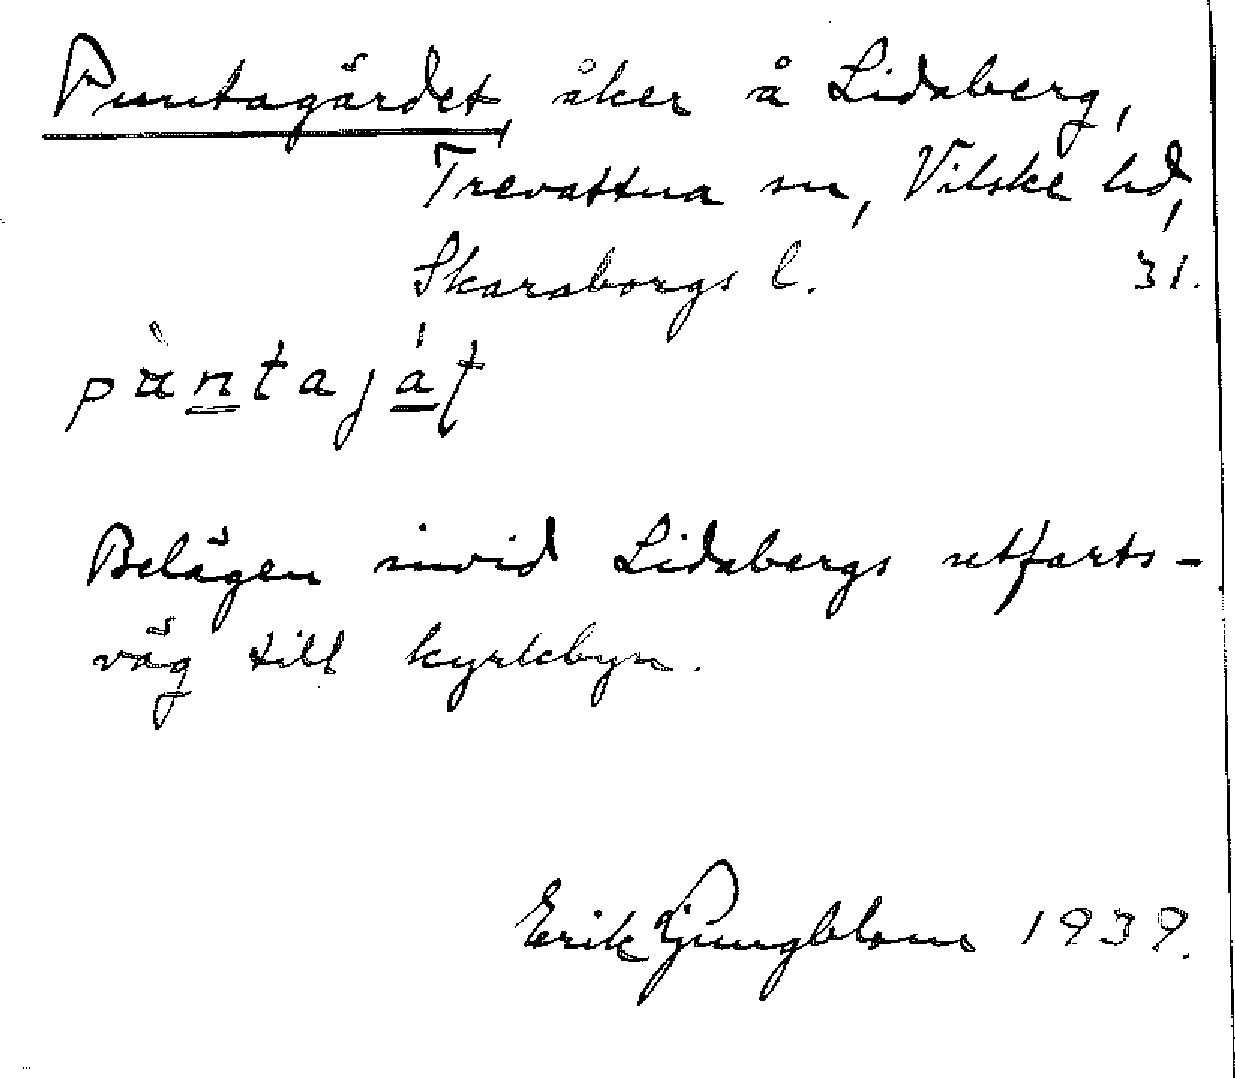 Puntagärdet, åker å Lidaberg,
Trevattna sn, Vilske hd,
Skaraborgs l. 31.
Belägen invid Lidabergs utfarts-
väg till kyrkbyn.
Erik Ljungblom 1939.